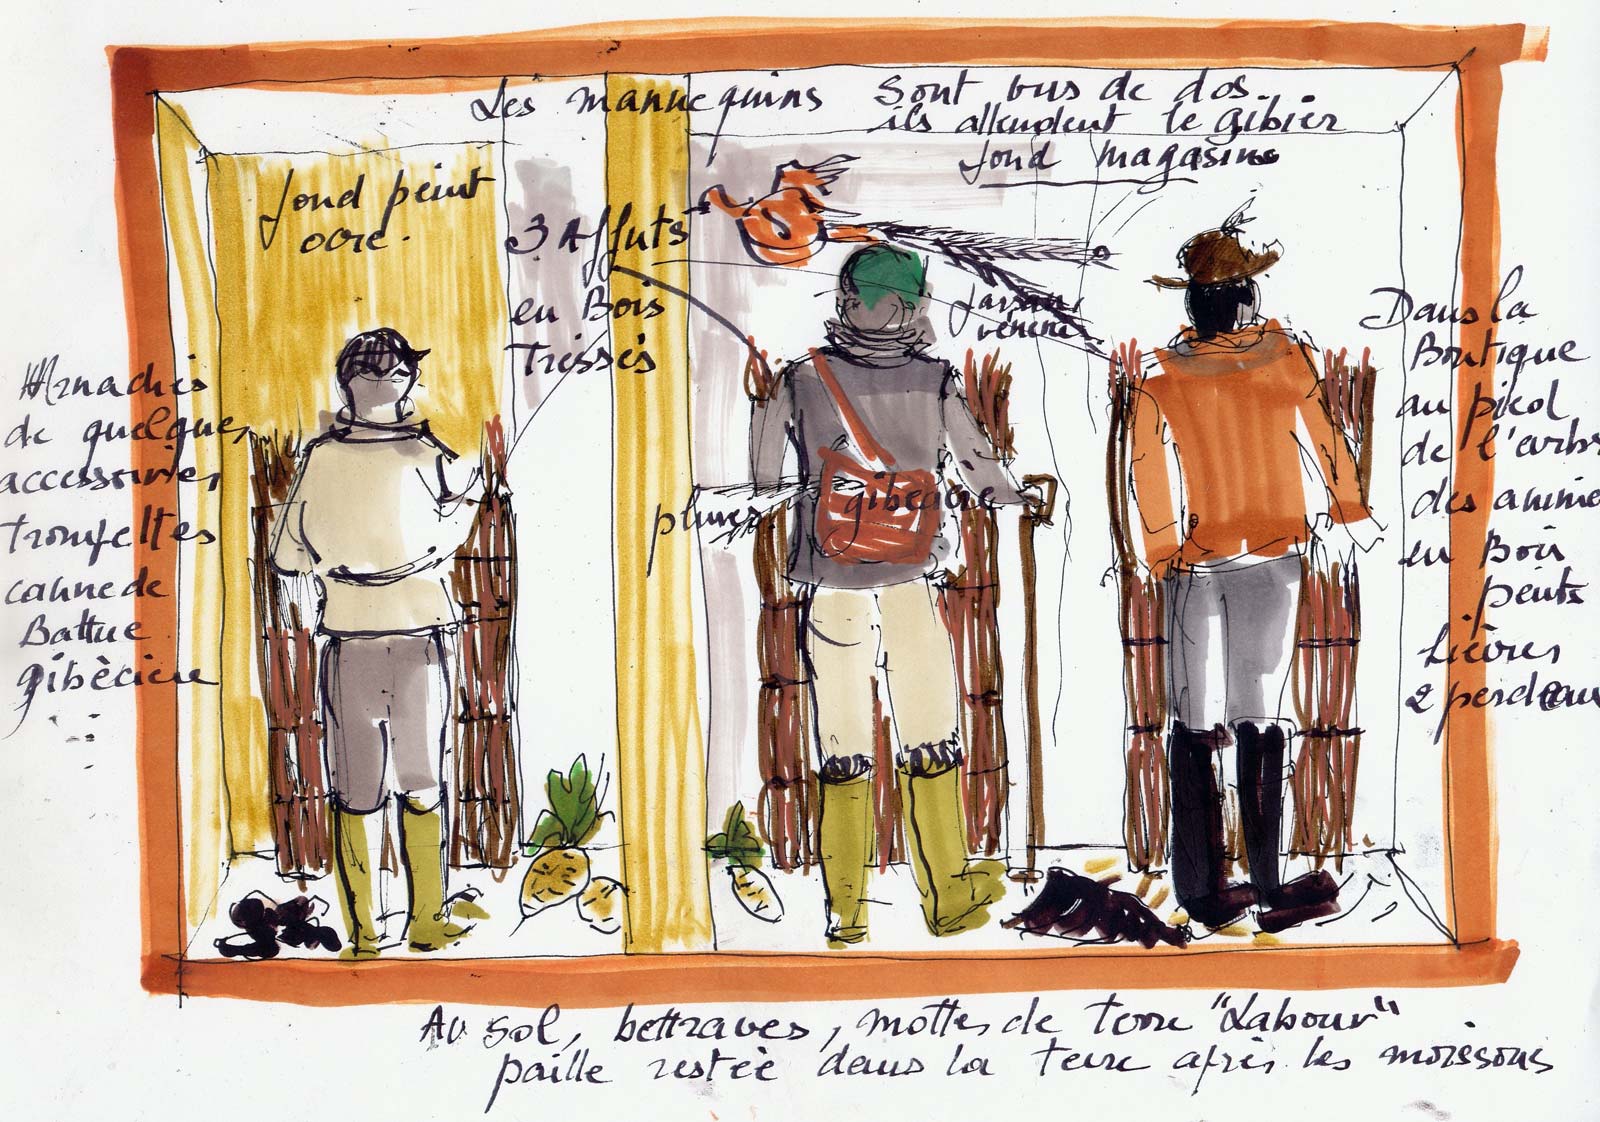 Les mannequins sont vus de dos.
ils attendent le gibier
fond magasin
fond peint
ocre.
3 Affuts
en Bois
Tressés
faisan
vénéré
plumes
gibecière
Harnachés
de quelques
accessoires
trompettes
canne de
Battue
gibècière
...
Dans la
Boutique
au pied
de l'arbr
des anima
en Bois
peints
Lièvres
2 perdreau
Au sol, bettraves, mottes de terre "Labour"
paille restée dans la terre après les moissons